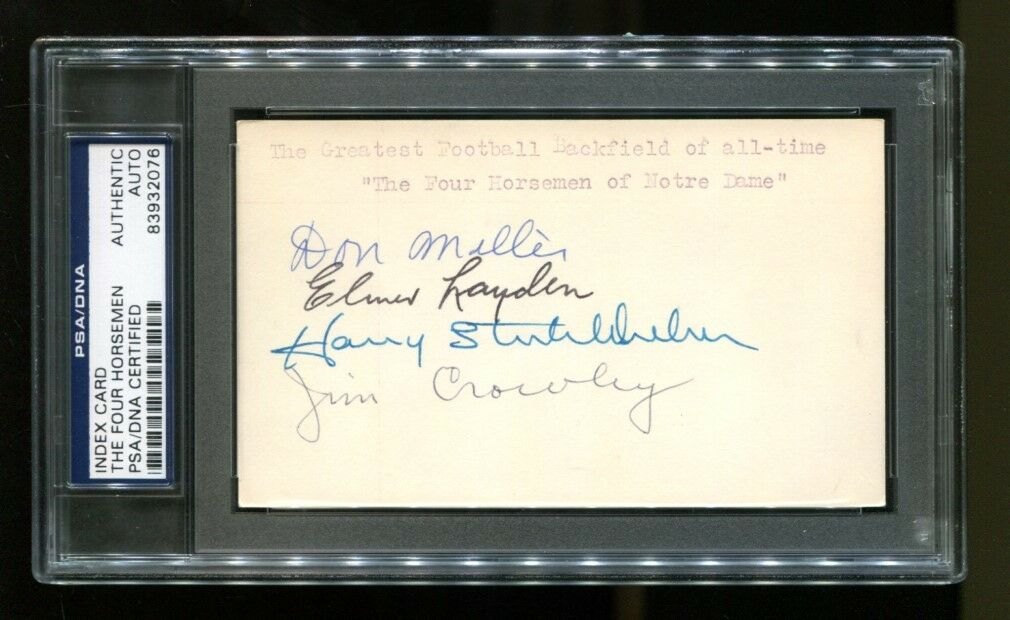 PSA/DNA
INDEX CARD
THE FOUR HORSEMEN
PSA/DNA CERTIFIED
AUTHENTIC
AUTO
83932076
The Greatest Football Backfield of all-time
"The Four Horsemen of Notre Dame"
Don Miller
Elmer Layden
Harry Stuhldreher
Jim Crowley